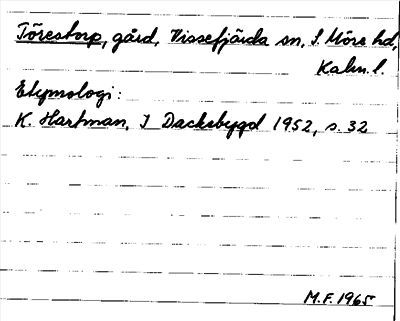 Törestorp, gård, Vissefjärda sn, S. Möre hd,
Kalm. l.
Etymologi:
K. Hartman, I Dackebygd 1952, s. 32
M.F. 1965